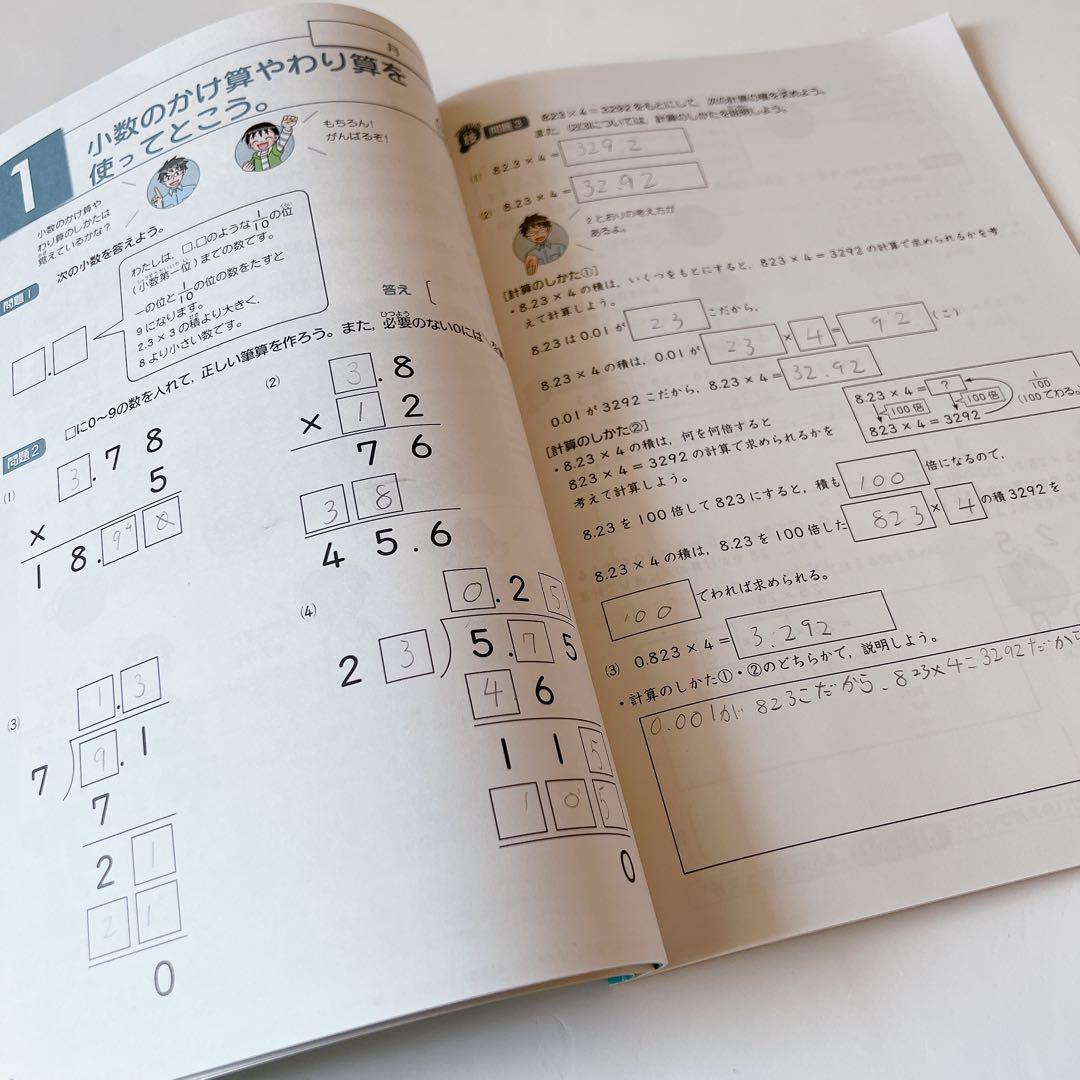 月
1
小数のかけ算やわり算を
使ってとこう。
もちろん！
がんばるぞ！
小数のかけ算や
わり算のしかたは
覚えているかな？
問題1
次の小数を答えよう。
わたしは、□.□のような1/10の位
(小数第一位)までの数です。
一の位と1/10の位の数をたすと
9になります。
2.3×3の積より大きく、
8より小さい数です。
□.□
答え [
問題2
□に0〜9の数を入れて、正しい筆算を作ろう。また、必要のない0には
(1)
3.78
× 5
18.90
(2)
3.8
× 12
76
38
45.6
(3)
1.3
7)9.1
7
21
21
0
(4)
0.25
23)5.75
46
115
105
0
問題3
823×4=3292をもとにして、次の計算の積を求めよう。
また、(2)(3)については、計算のしかたを説明しよう。
(1) 82.3×4= 329.2
(2) 8.23×4= 32.92
2とおりの考え方が
あるよ。
[計算のしかた①]
・8.23×4の積は、いくつをもとにすると、823×4=3292の計算で求められるかを考
えて計算しよう。
8.23は0.01が 23 こだから、
8.23×4の積は、0.01が 23 × 4 = 92 (こ)
0.01が3292こだから、8.23×4= 32.92
[計算のしかた②]
・8.23×4の積は、何を何倍すると
823×4=3292の計算で求められるかを
考えて計算しよう。
8.23×4= ?
100倍 100倍
823×4=3292
1/100
(100でわる。)
8.23を100倍して823にすると、積も 100 倍になるので、
8.23×4の積は、8.23を100倍した 823 × 4 の積3292を
100 でわれば求められる。
(3) 0.823×4= 3.292
・計算のしかた①・②のどちらかで、説明しよう。
0.001が823こだから、823×4=3292だから